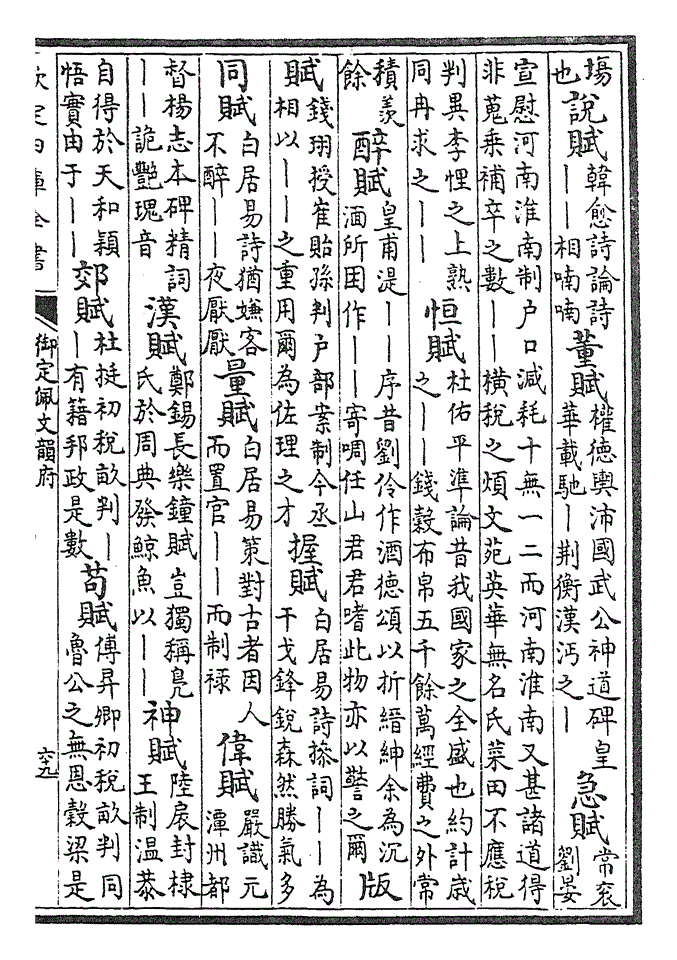 塲
也
說賦
韓愈詩論詩
——相喃喃
董賦
權德輿沛國武公神道碑皇
華載馳—荆衡漢沔之—
急賦
常衮
劉晏
宣慰河南淮南制户口減耗十無一二而河南淮南又甚諸道得
非蒐乗補卒之數——横稅之煩文苑英華無名氏菜田不應稅
判異李悝之上熟
同冉求之——
恒賦
杜佑平準論昔我國家之全盛也約計歳
之——錢穀布帛五千餘萬經費之外常
積羨
餘
醉賦
皇甫湜——序昔劉伶作酒德頌以折縉紳余為沉
湎所困作——寄啁任山君君嗜此物亦以警之爾
版
賦
錢珝授崔貽孫判户部案制今丞
相以——之重用爾為佐理之才
握賦
白居易詩摻詞——為
干戈鋒銳森然勝氣多
同賦
白居易詩猶嫌客
不醉——夜厭厭
量賦
白居易策對古者因人
而置官——而制祿
偉賦
嚴識元
潭州都
督楊志本碑精詞
——詭艷瑰音
漢賦
鄭錫長樂鐘賦豈獨稱凫
氏於周典發鯨魚以——
神賦
陸扆封棣
王制温恭
自得於天和穎
悟實由于——
郊賦
杜挺初稅畝判—
—有籍邦政是數
苟賦
傅昇卿初稅畝判同
魯公之無恩穀梁是
欽定四庫全書
御定佩文韻府
六十九